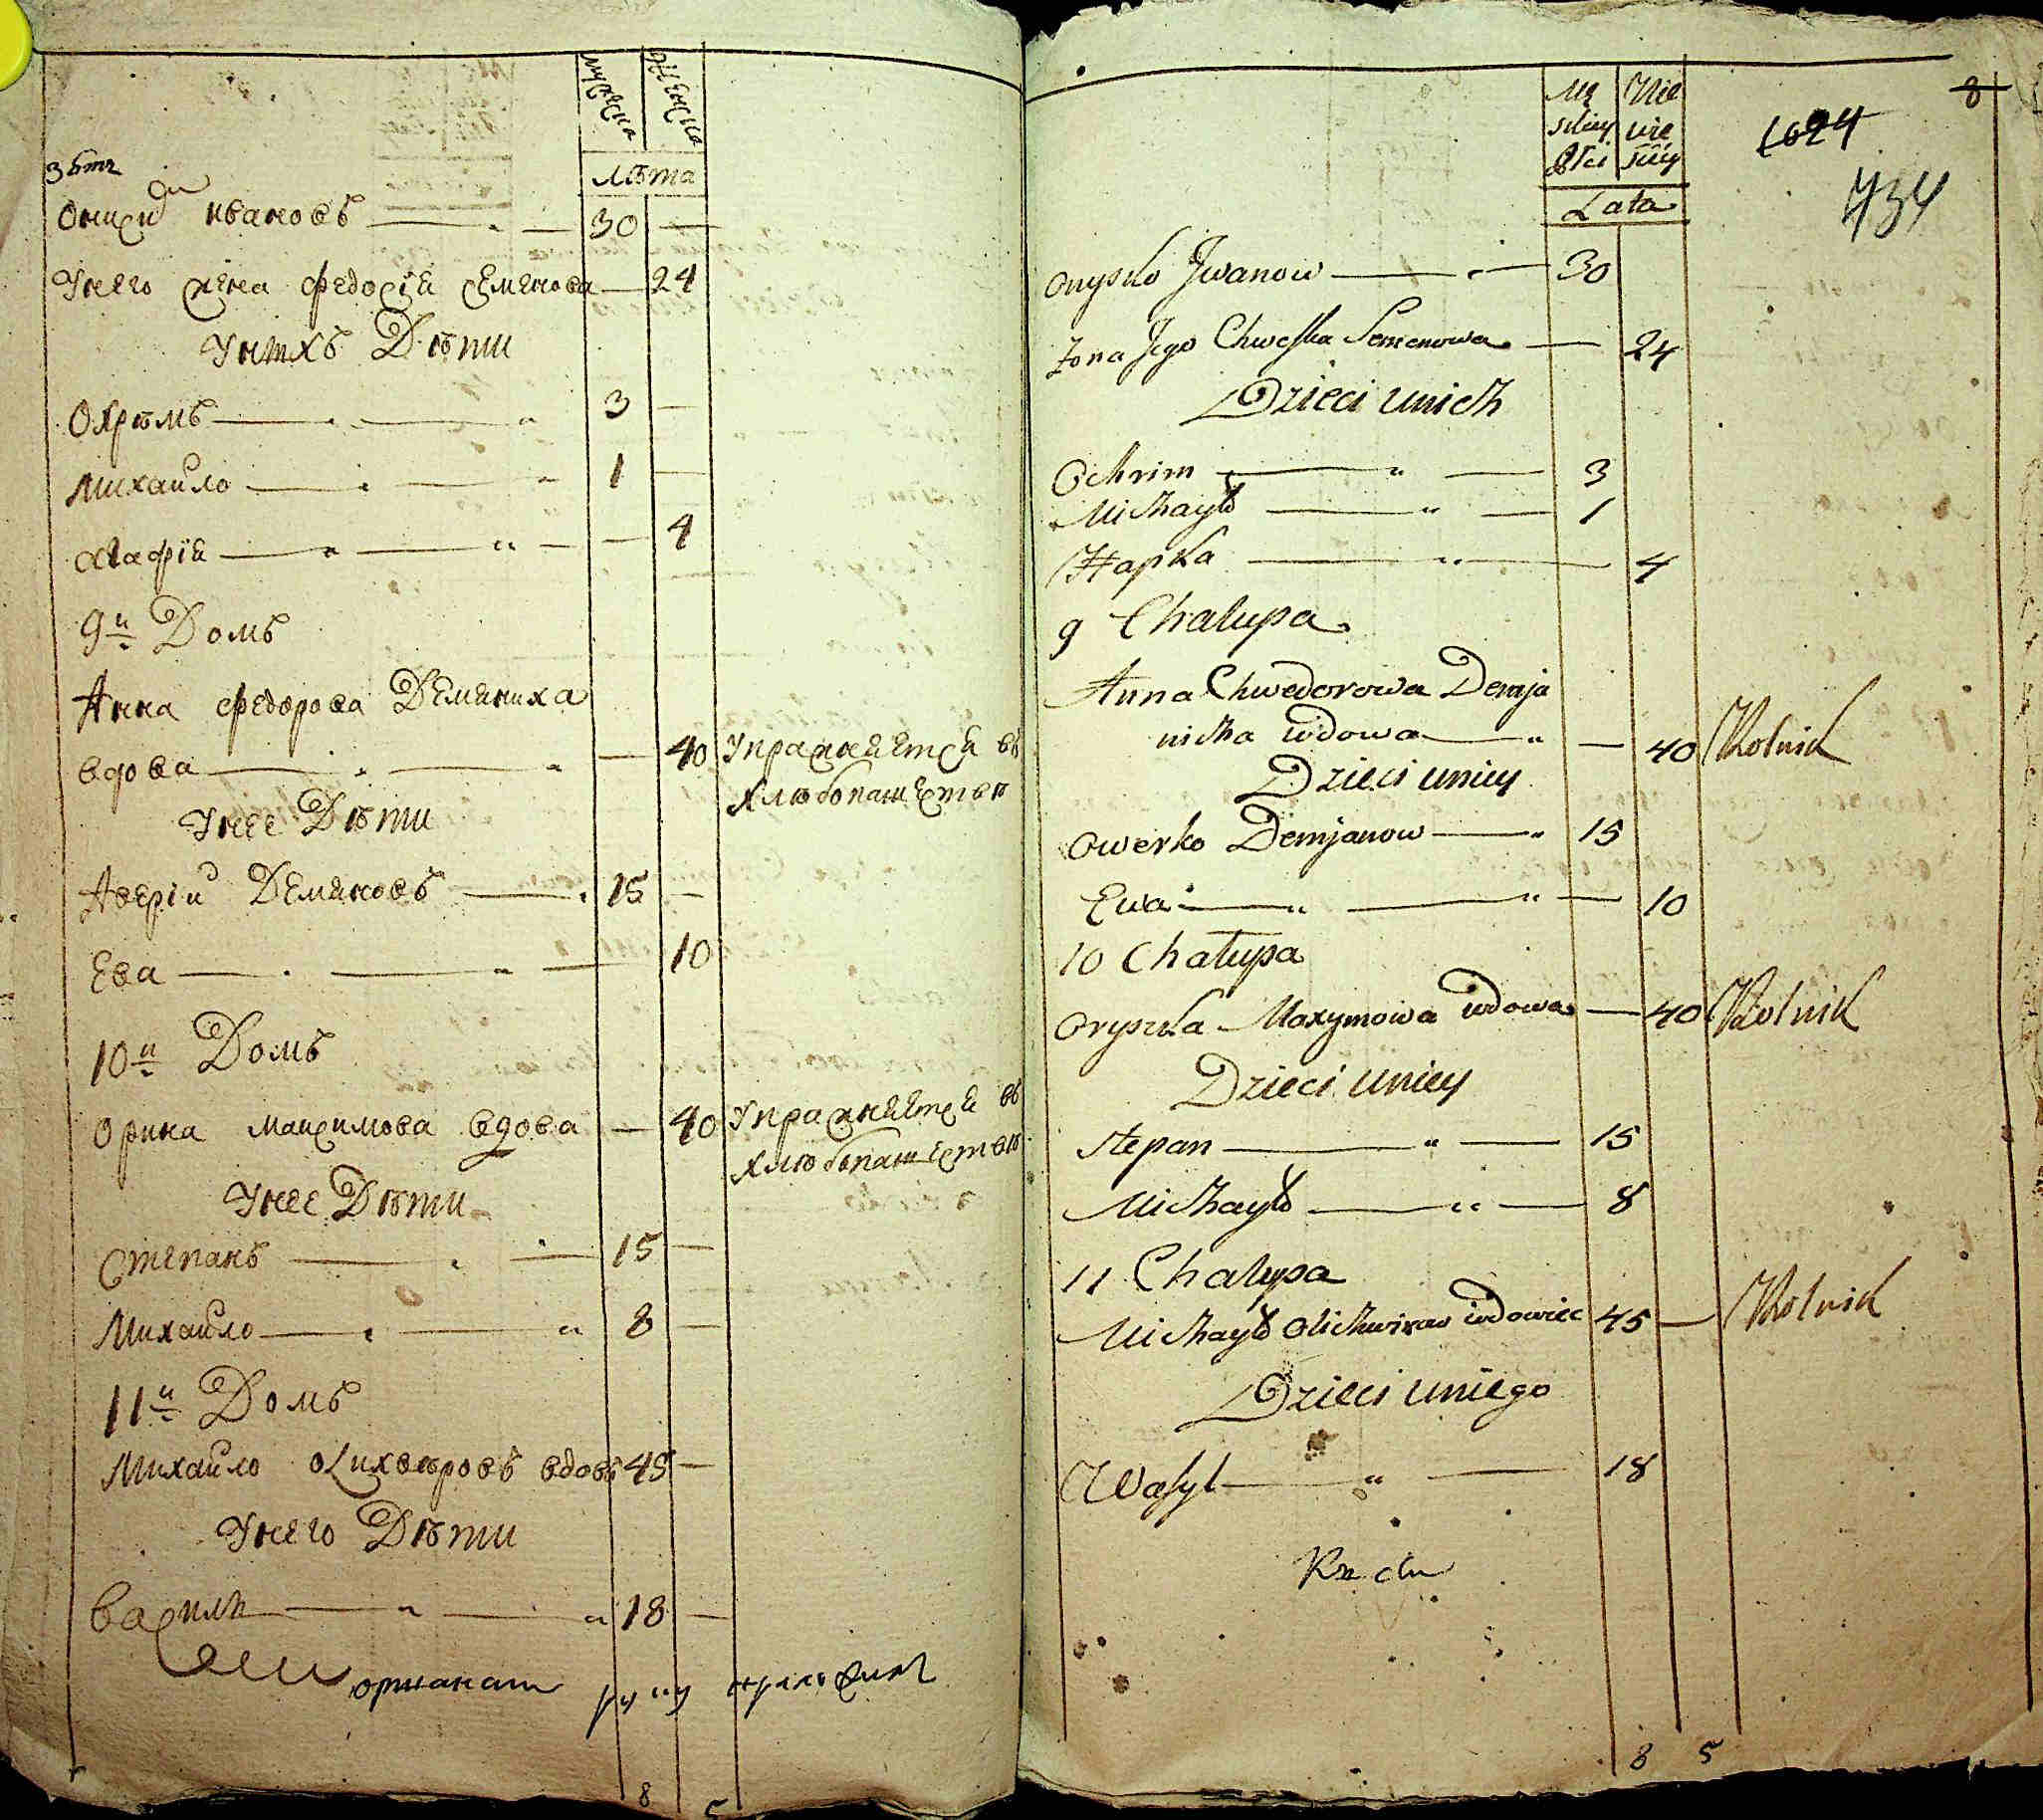 мужеска женска
лѣта
зять
Онисий Ивановъ 30
У него жена Федосія Семенова 24
У нихъ Дѣти
Охрѣмъ 3
Михайло 1
Агафія 4
9й Домъ
Анна Федорова Демяниха
вдова 40 Упражняется въ
хлѣбопашествѣ
У нее Дѣти
Аверій Демяновъ 15
Ева 10
10й Домъ
Орина Максимова вдова 40 Упражняется въ
хлѣбопашествѣ
У нее Дѣти
Степанъ 15
Михайло 8
11й Домъ
Михайло Олихвѣровъ вдовъ 45
У него Дѣти
Василь 18
руку приложилъ
8 5
8
1624
734
Mę Nie
skiey wie
Płci sciey
Lata
Onyszko Jwanow 30
Zona Jego Chweska Semenowa 24
Dzieci u nich
Ochrim 3
Michayło 1
Hapka 4
9 Chałupa
Anna Chwedorowa Demja
nicha wdowa 40 Rolnik
Dzieci u niey
Owerko Demjanow 15
Ewa 10
10 Chałupa
Oryszka Maxymowa wdowa 40 Rolnik
Dzieci u niey
Stepan 15
Michayło 8
11 Chałupa
Michayło Olichwirow wdowiec 45 Rolnik
Dzieci u niego
Wasyl 18
8 5